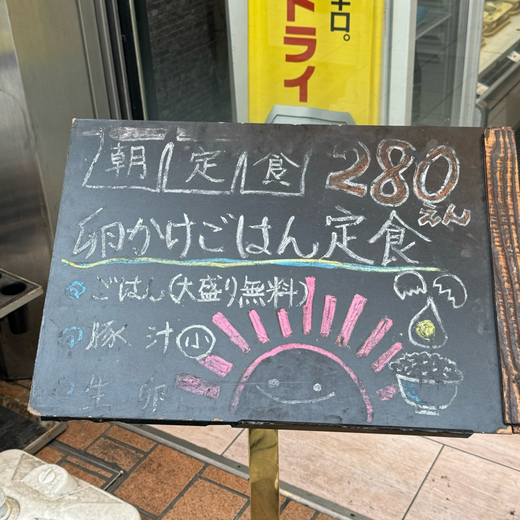 キロ。
トライ
朝定食 280えん
卵かけごはん定食
ごはん(大盛り無料)
豚汁小
生卵